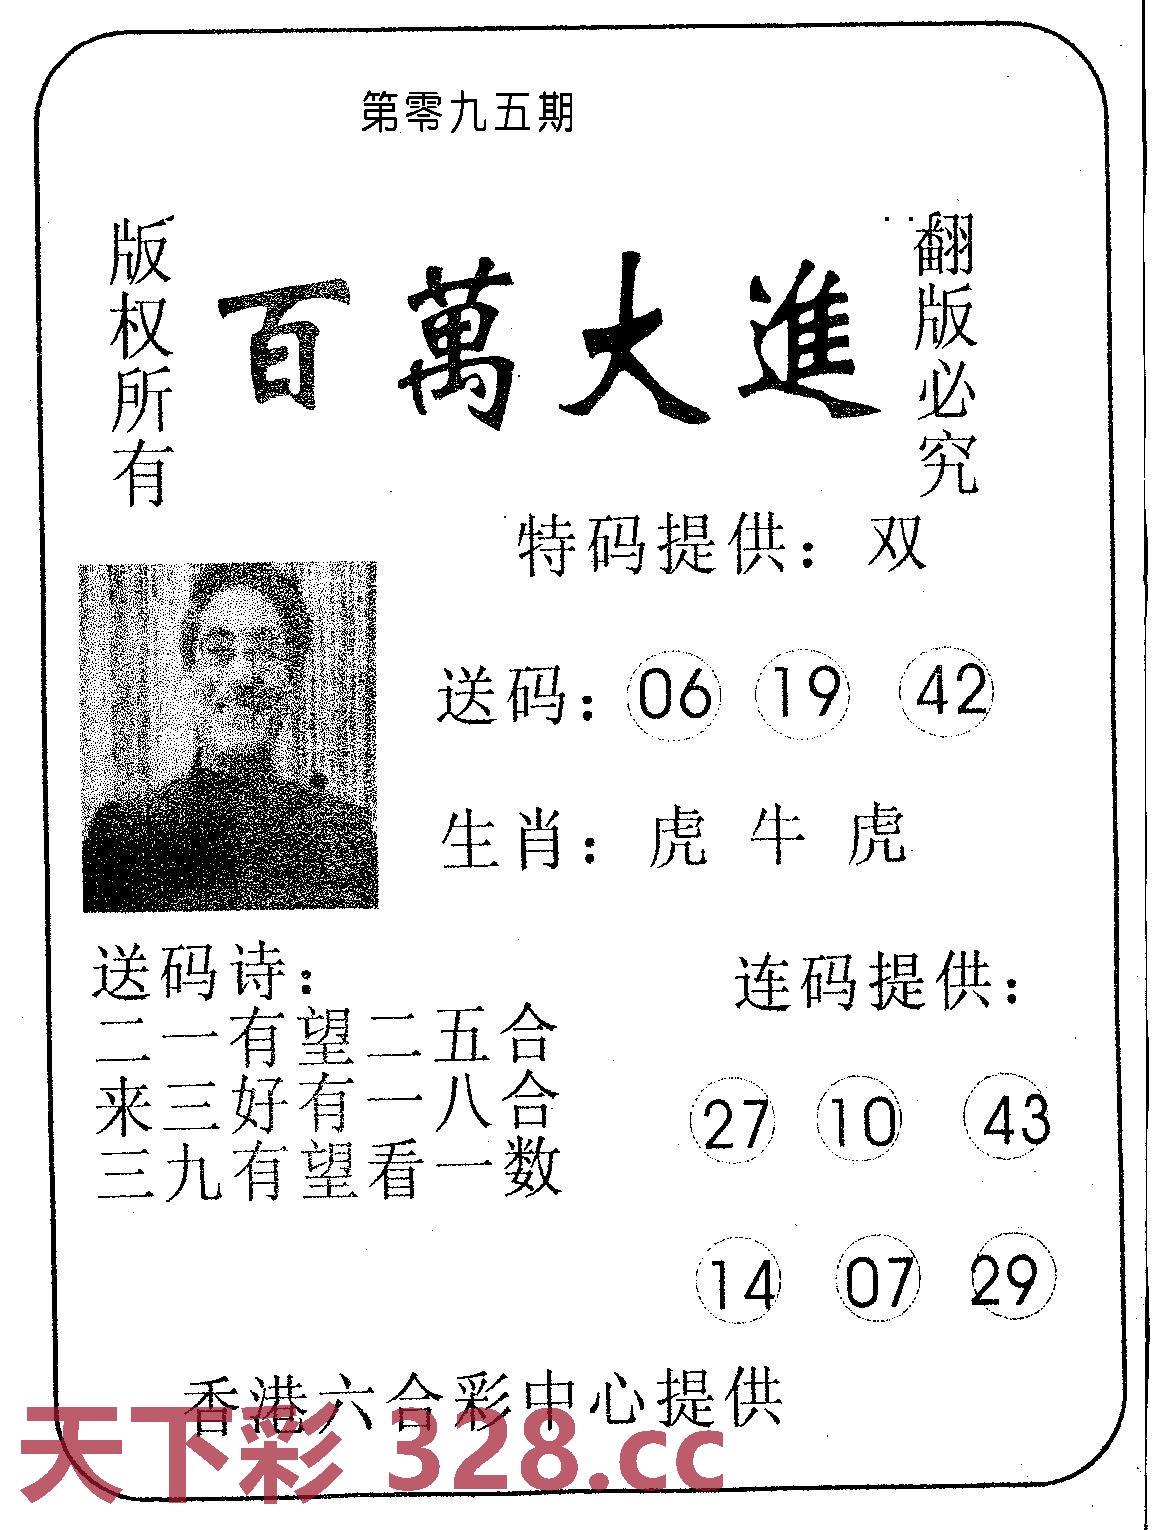 第零九五期
版权所有
百萬大進
翻版必究
特码提供：双
送码：06 19 42
生肖：虎 牛 虎
送码诗：
二一有望二五合
来三好有一八合
三九有望看一数
连码提供：
27 10 43
14 07 29
香港六合彩中心提供
天下彩 328.cc